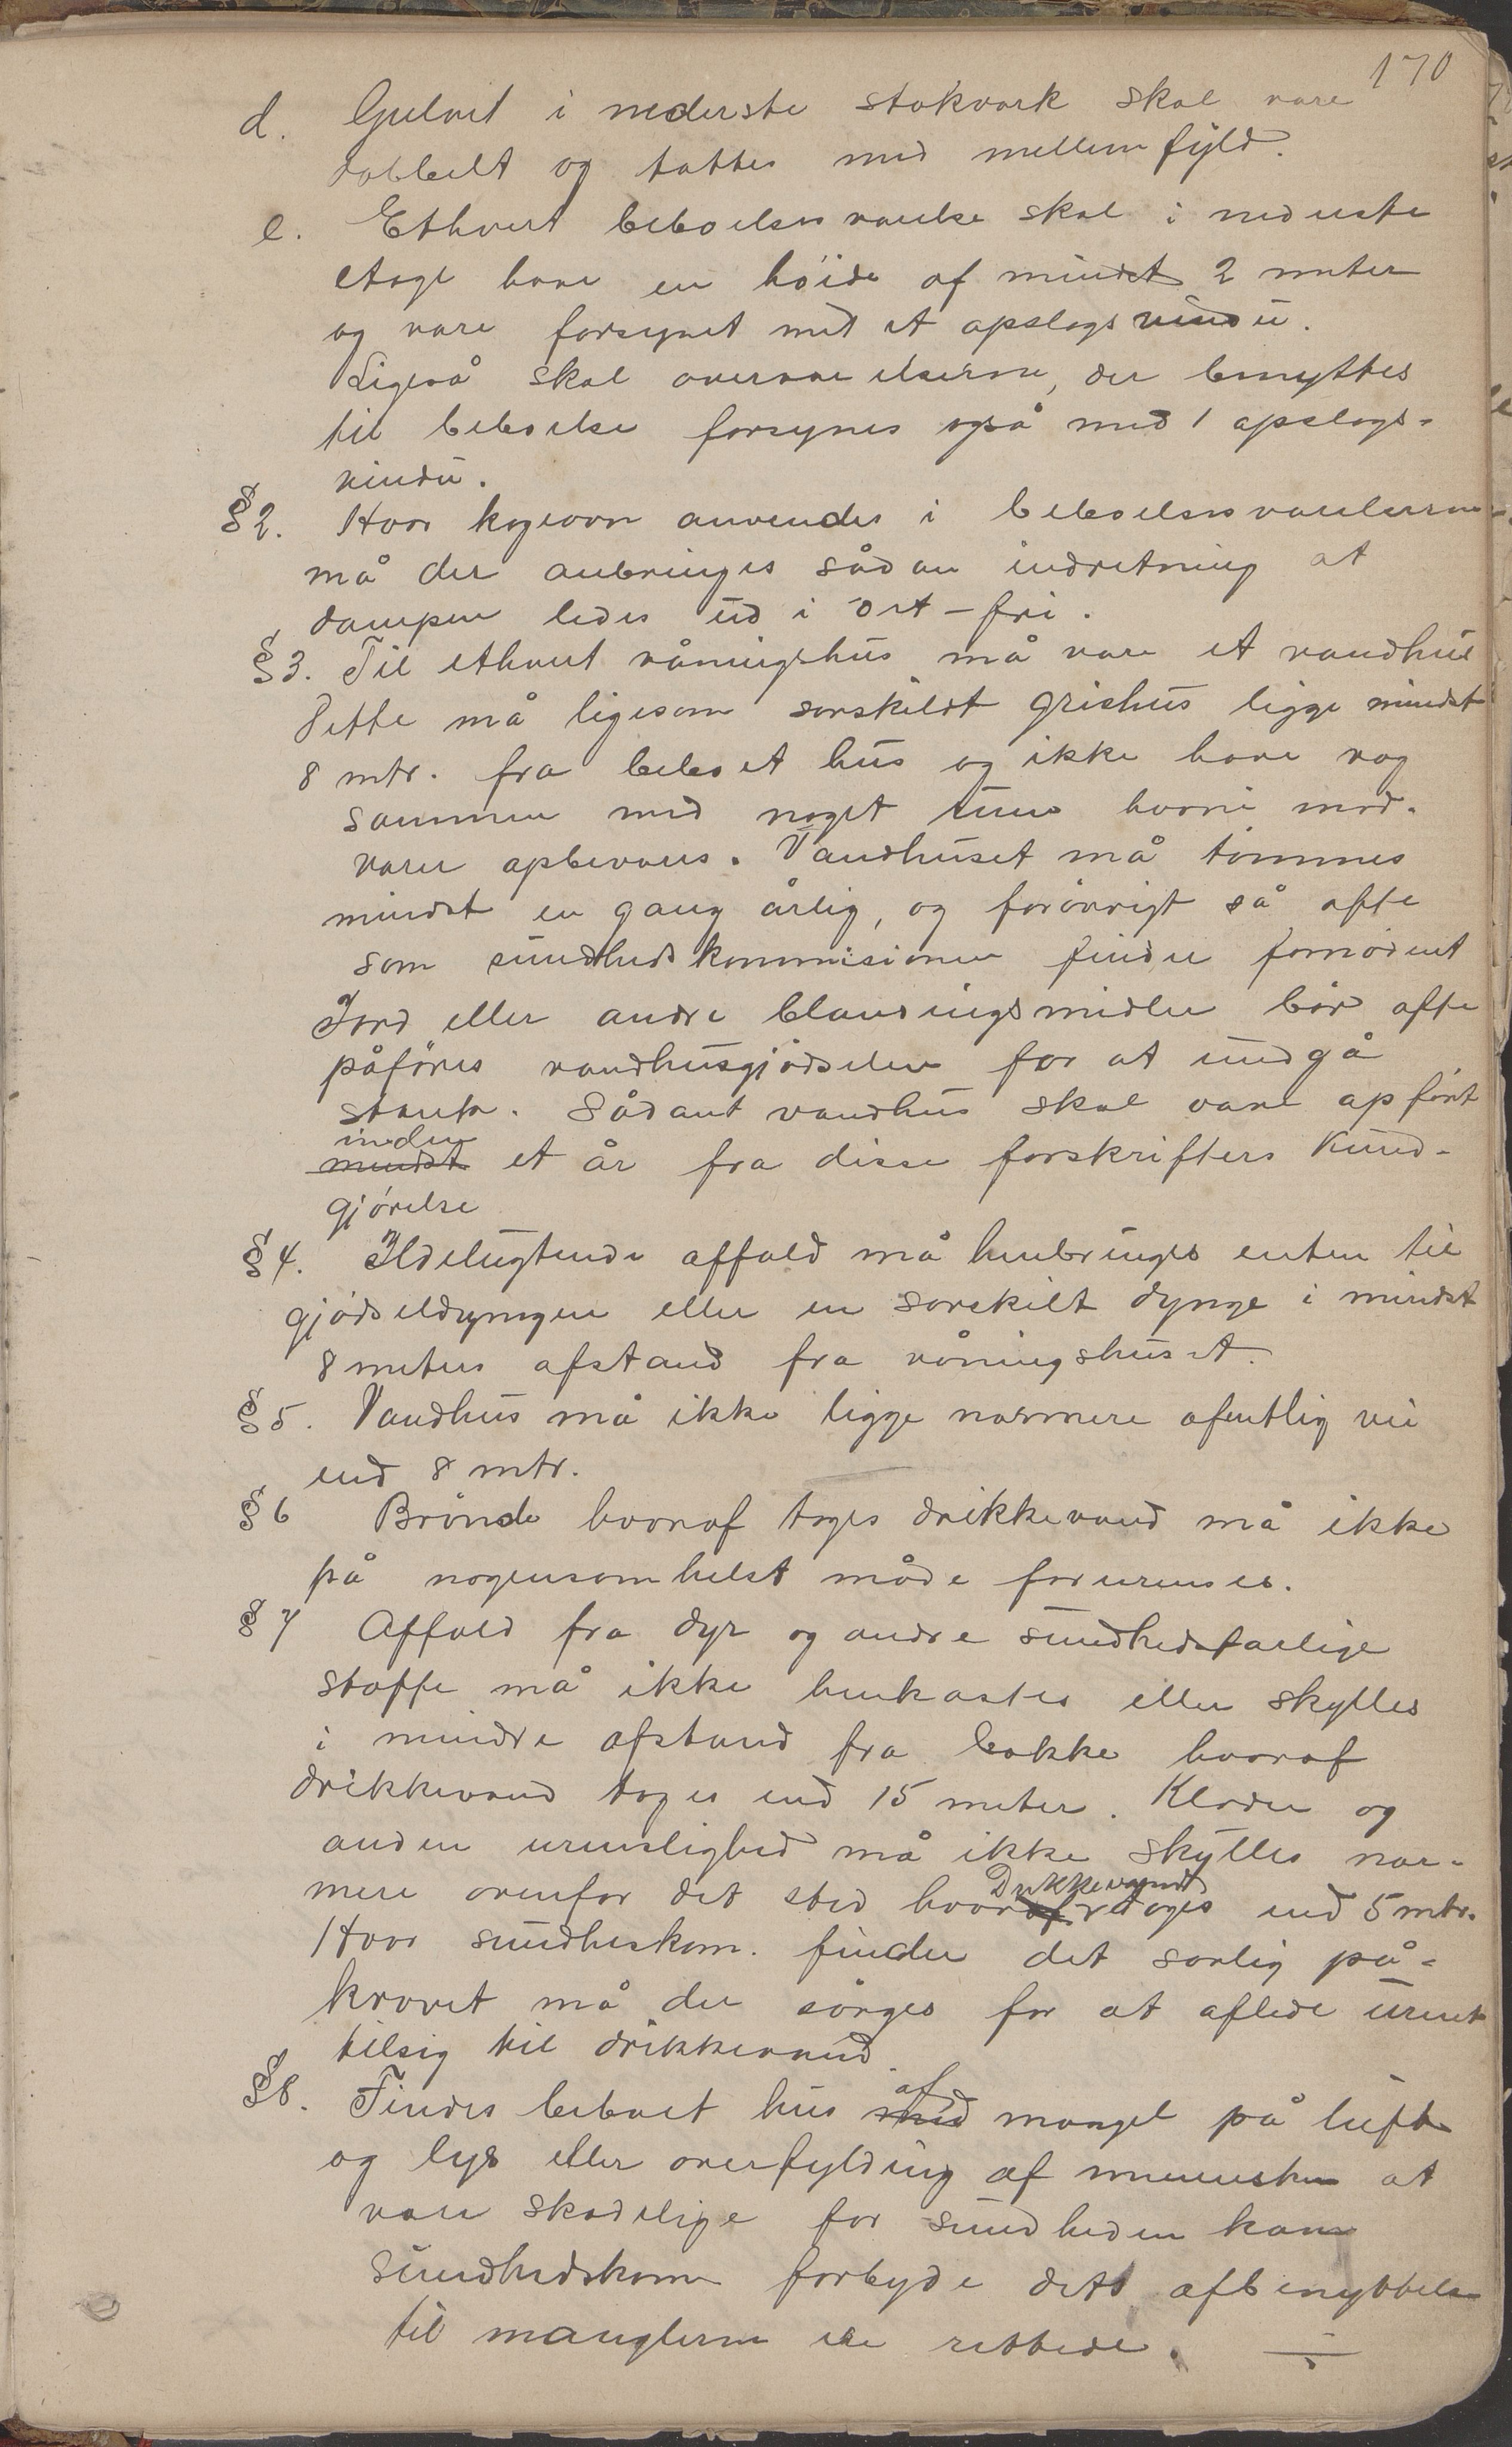 170
d. Gulvet i nederste stokverk skal være
dobbelt og tættes med mellemfyld.
e. Ethvert beboelsesværelse skal i nederste
etage have en høide af mindst 2 meter
og være forsynet med et opslagsvindu.
Ligeså skal overværelserne, der benyttes
til beboelse forsynes også med 1 opslags-
vindu.
§2. Hvor kogeovn anvendes i beboelsesværelserne
må der anbringes sådan indretning at
dampen ledes ud i det-fri.
§3. Til ethvert våningshus må være et vandhus
Dette må ligesom særskildt grishus ligge mindst
8 mtr. fra beboet hus og ikke have væg
sammen med noget rum hvori mad-
varer opbevares. Vandhuset må tømmes
mindst en gang årlig, og forøvrigt så ofte
som sundhedskommisionen finder fornødent
Jord eller andre blandingsmidler bør ofte
påføres vandhusgjødselen for at undgå
stank. Sådant vandhus skal være opført
inden
mindst et år fra disse forskrifters kund-
gjørelse
§4. Ildelugtende affald må henbringes enten til
gjødseldyngen eller en særskilt dynge i mindst
8 meters afstand fra våningshuset.
§5. Vandhus må ikke ligge nærmere ofentlig vei
end 8 mtr.
§6 Brønde hvoraf tages drikkevand må ikke
på nogensomhelst måde forurenses.
§7 Affald fra dyr og andre sundhedsfarlige
stoffe må ikke henkastes eller skylles
i mindre afstand fra bække hvoraf
drikkevand tages end 15 meter. Klæder og
anden urenslighed må ikke skylles nær-
mere ovenfor det sted hvor Drikkevandt tages end 5 mtr.
Hvor sundheskom. finder det særlig på-
krævet må der sørges for at aflede urent
tilsig til drikkevand.
§8. Findes beboet hus med af mangel på luft
og lys eller overfylding af mennesker at
være skadelige for sundheden kan
sundhedskom forbyde dets afbenyttelse
til manglerne ere rettede.